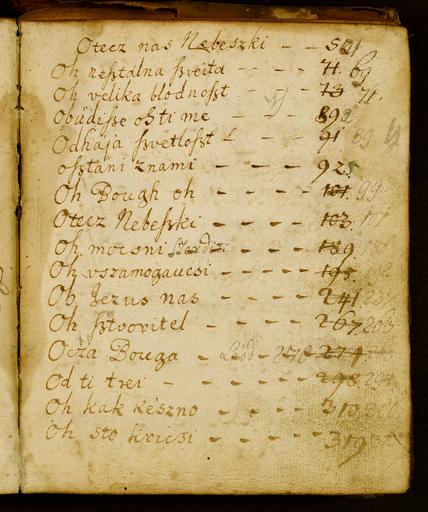 Otecz nas Nebeszki - - 521
Oh nestalna sveita - - - 71. 69
Oh velika blodnosst - - - 73 71.
Obudisse ossti me - - - 892
Odhaja svetlosst - - - 91
osstani znami - - - - 925
Oh Bough oh - - - - - 101 99
Otecz Nebesski - - - - 103.
Oh mocsni - - - 189
Oh vszamogaucsi - - - - - 195.
Ob Jezus nas - - - - 241
Oh sstvoritel - - - - - 267
Ocza Bouga - - - 270 274
Od ti trei - - - - - - 298
Oh kak keszno - - - - - 310
Oh sto kricsi - - - - - 319